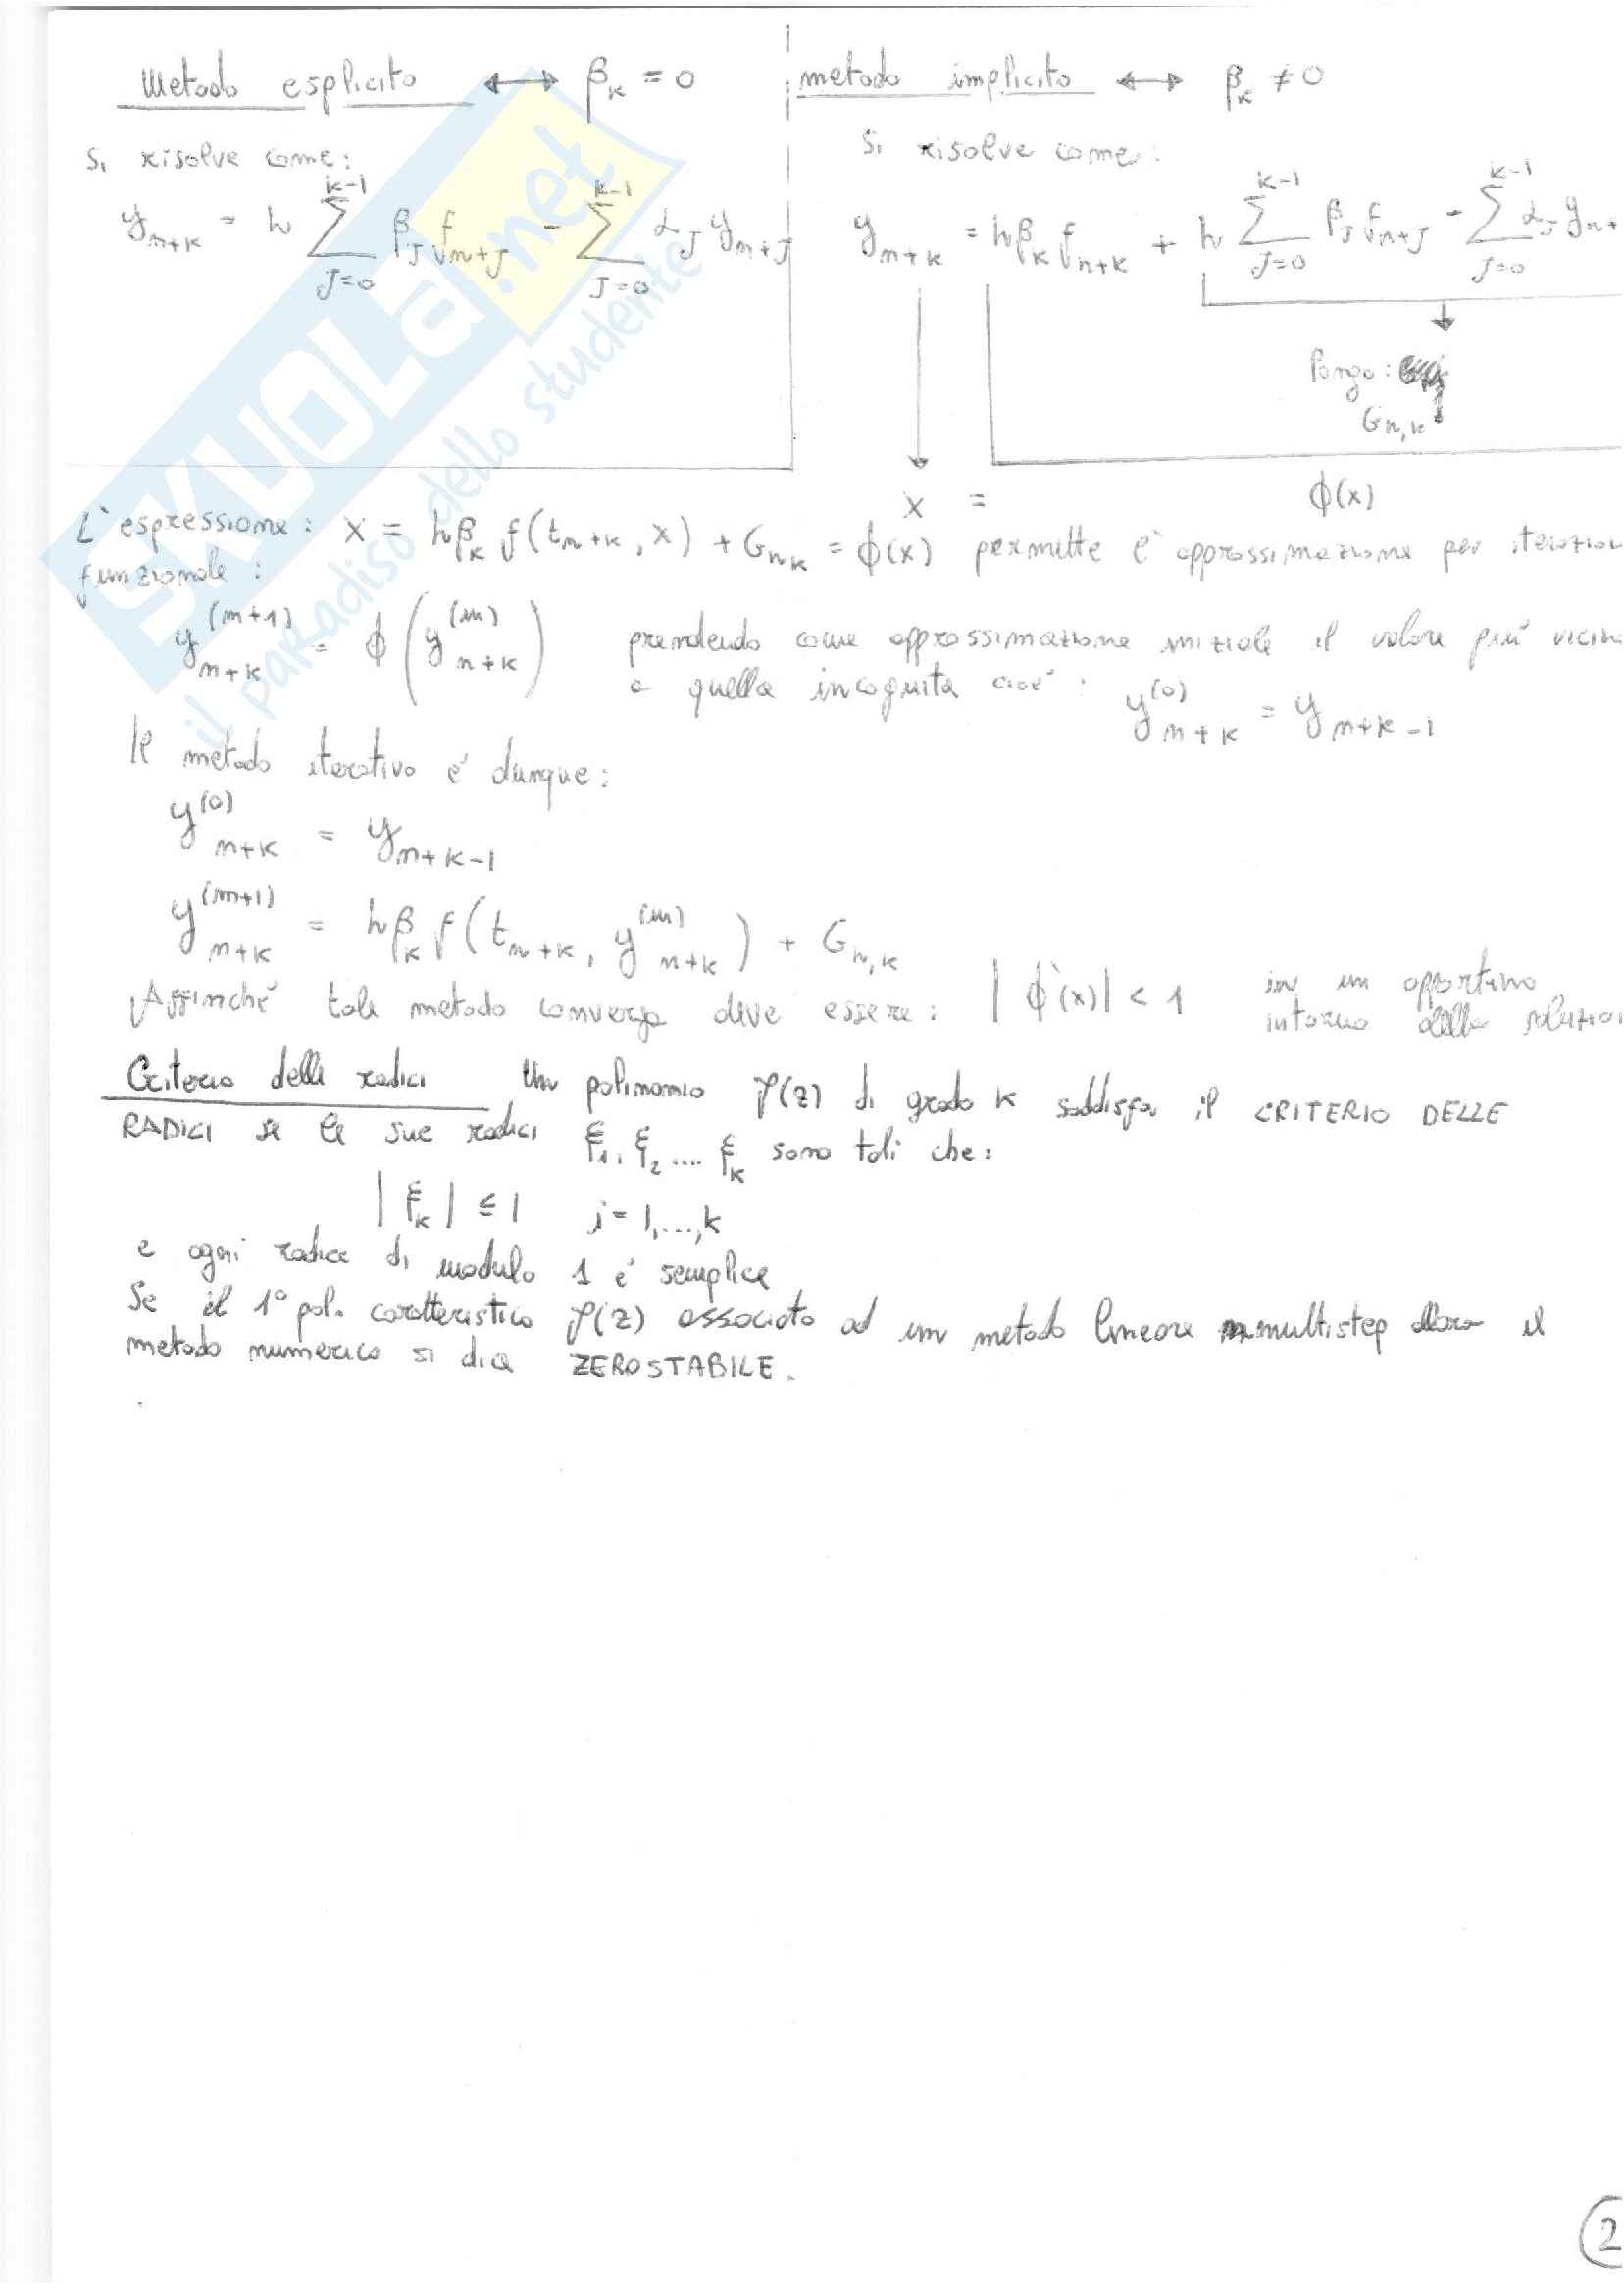 Metodo esplicito ↔ β_k = 0
Si risolve come:
y_{n+k} = h ∑_{J=0}^{k-1} β_J f_{n+J} - ∑_{J=0}^{k-1} α_J y_{n+J}
metodo implicito ↔ β_k ≠ 0
Si risolve come:
y_{n+k} = hβ_k f_{n+k} + h ∑_{J=0}^{k-1} β_J f_{n+J} - ∑_{J=0}^{k-1} α_J y_{n+
Pongo:
G_{n,k}
x = ϕ(x)
L'espressione: x = hβ_k f(t_{n+k}, x) + G_{nk} = ϕ(x) permette l'approssimazione per iterazion
funzionale:
y_{n+k}^{(m+1)} = ϕ(y_{n+k}^{(m)}) prendendo come approssimazione iniziale il valore più vicin
a quella incognita cioè: y_{n+k}^{(0)} = y_{n+k-1}
Il metodo iterativo è dunque:
y_{n+k}^{(0)} = y_{n+k-1}
y_{n+k}^{(m+1)} = hβ_k f(t_{n+k}, y_{n+k}^{(m)}) + G_{n,k}
Affinché tale metodo converga deve essere: |ϕ'(x)| < 1 in un opportuno
intorno della soluzion
Criterio delle radici Un polinomio ρ(z) di grado k soddisfa il CRITERIO DELLE
RADICI se le sue radici ξ_1, ξ_2 .... ξ_k sono tali che:
|ξ_k| ≤ 1 j = 1,...,k
e ogni radice di modulo 1 è semplice
Se il 1° pol. caratteristico ρ(z) associato ad un metodo lineare multistep allora il
metodo numerico si dice ZEROSTABILE.
2
SKUOLa.net
il paradiso dello studente